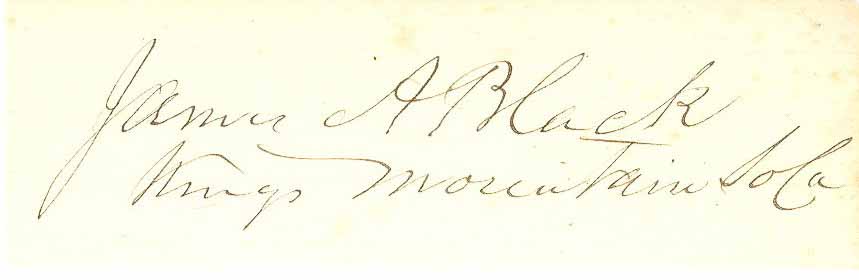 James A Black
Kings Mountain So Ca